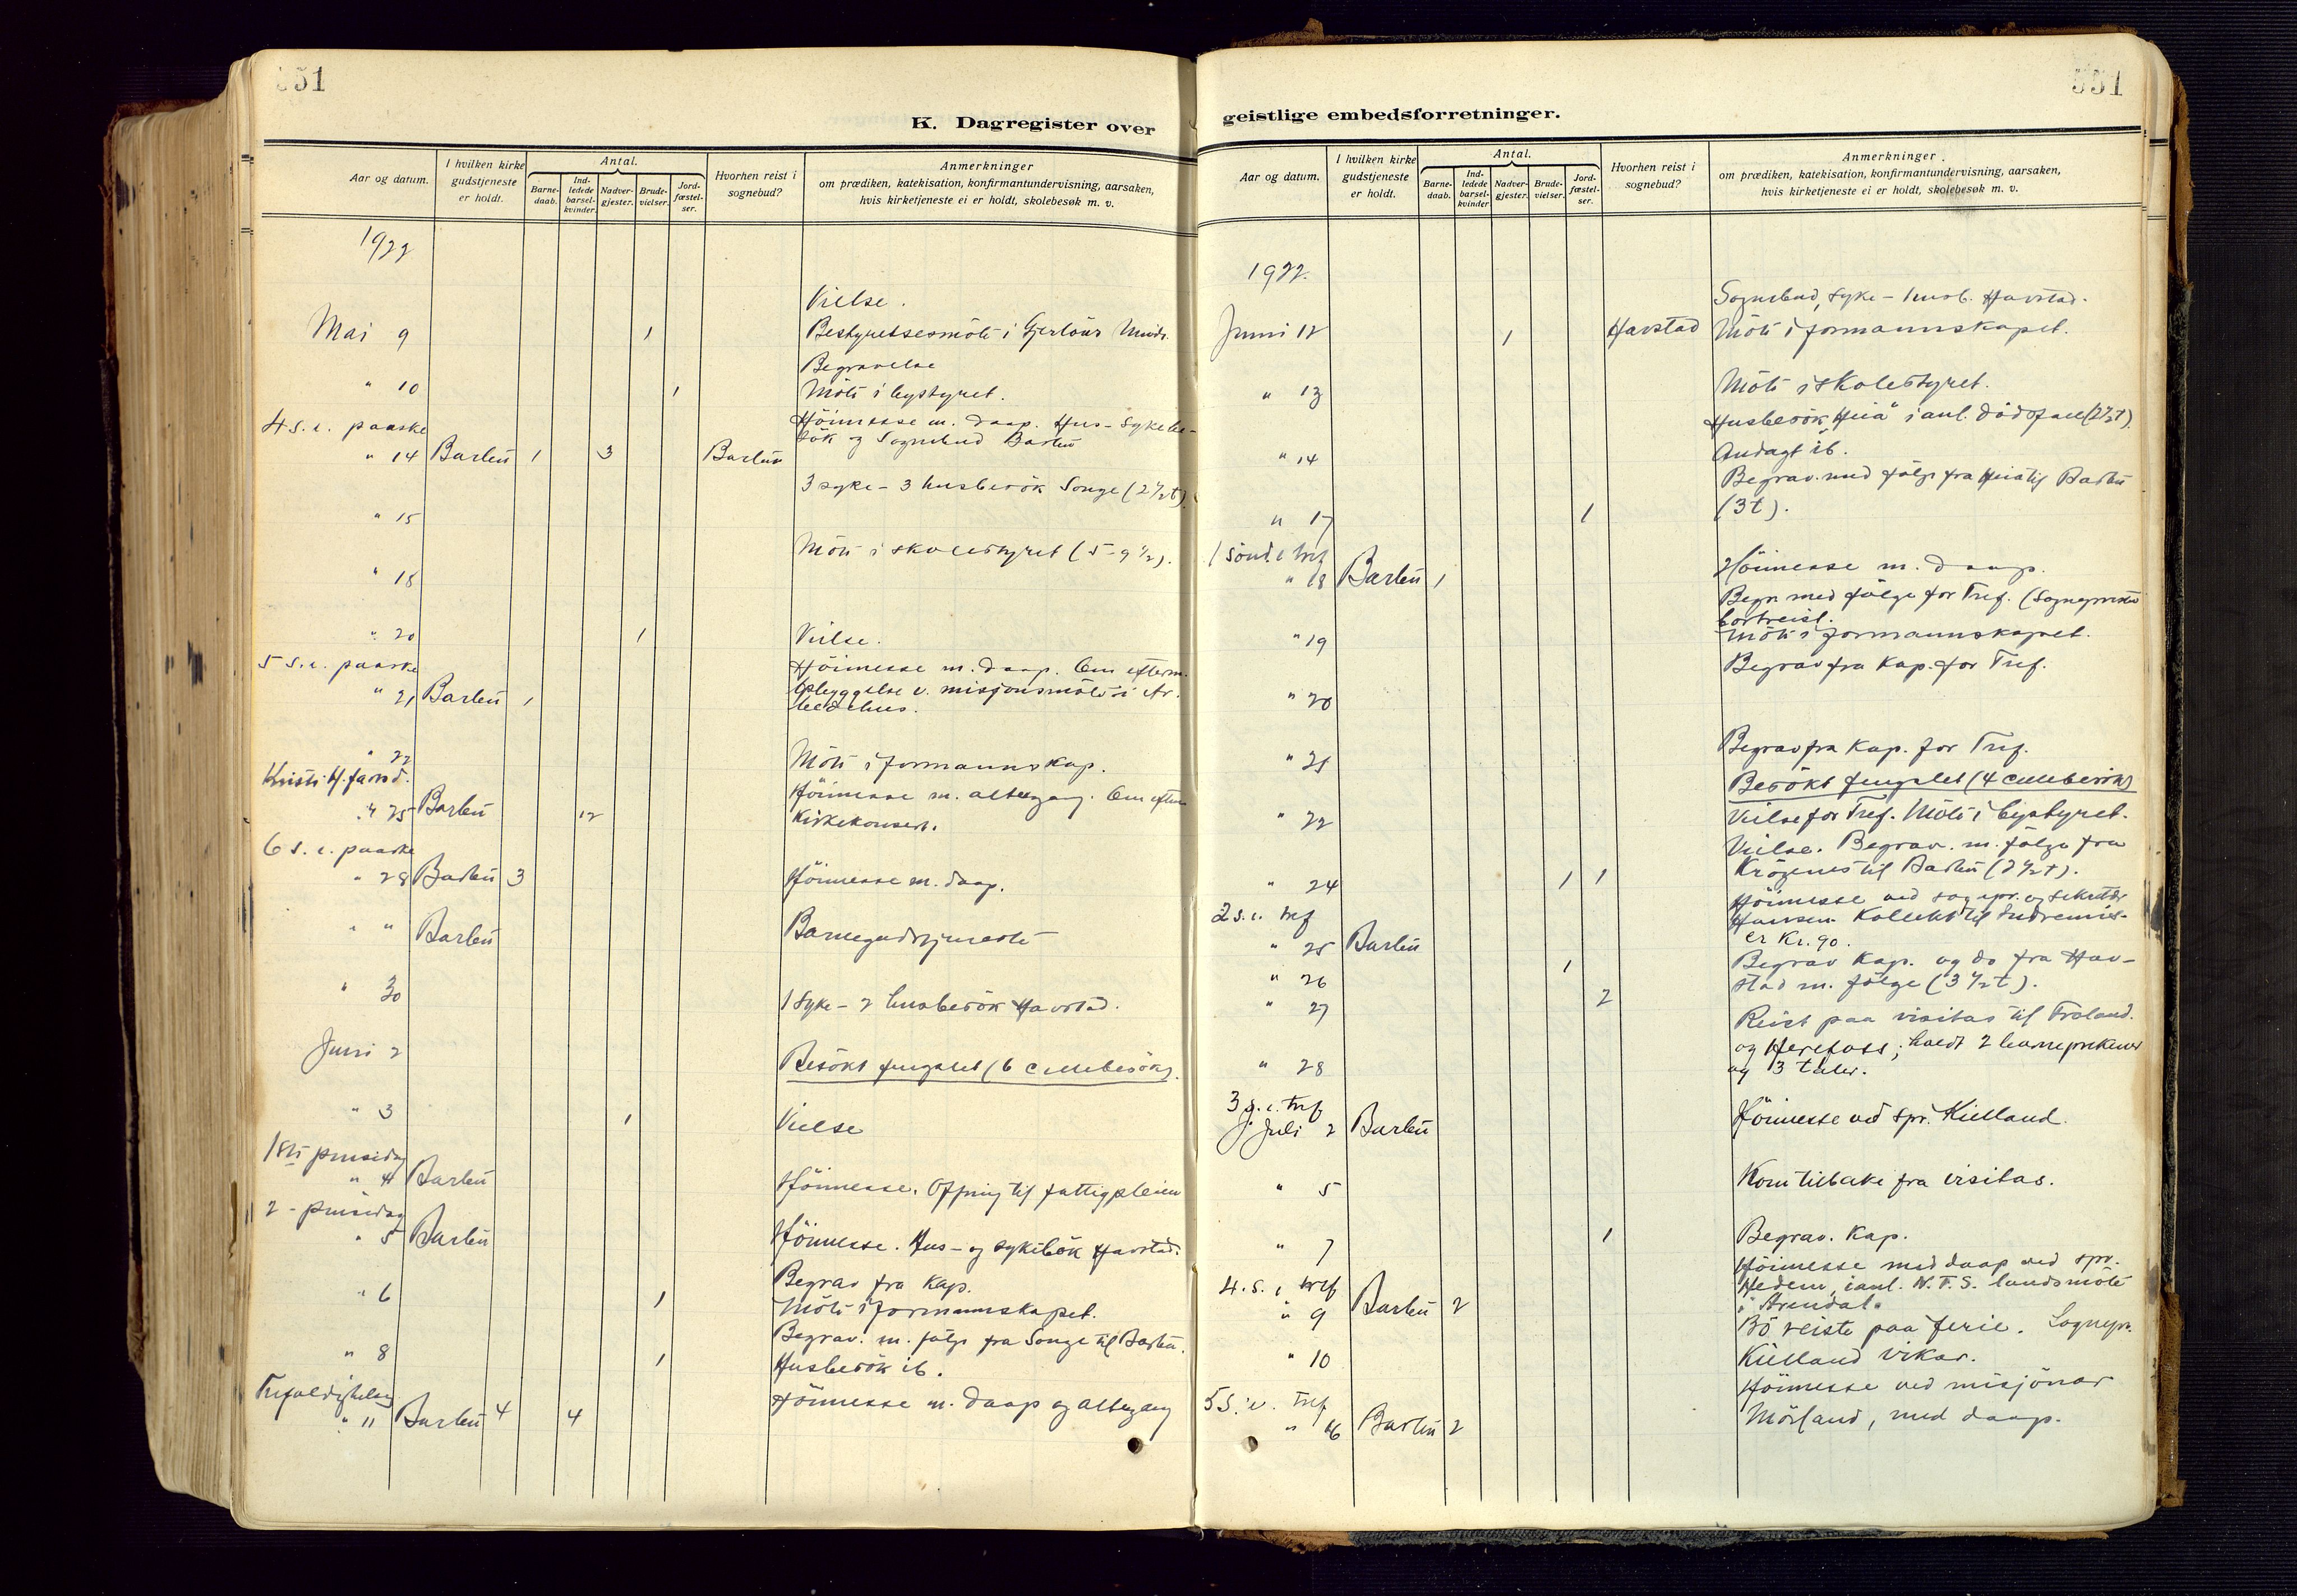 551
K. Dagregister over
Aar og datum.
I hvilken kirke gudstjeneste er holdt.
Antal.
Barne-daab.
Ind-ledede barsel-kvinder.
Nadver-gjester.
Brude-vielser.
Jord-fæstel-ser.
Hvorhen reist i sognebud?
Anmerkninger
om prædiken, katekisation, konfirmantundervisning, aarsaken,
hvis kirketjeneste ei er holdt, skolebesøk m. v.
1922
Vielse.
Mai 9 1 Bestyrelsesmöte i Gjerlöws Minde.
Begravelse
" 10 1 Möte i bystyret.
4 s. e. paaske Höimesse m. daap. Hus- sykebe-
sök og Sognebud Barbu
" 14 Barbu 1 3 Barbu
3 syke- 3 husbesök Songe (2 1/2 t).
" 15
Möte i skolestyret (5-9 1/2).
" 18
" 20 1 Vielse.
5 s. e. paaske Höimesse m. daap. Om efterm.
Opbyggelse v. misjonsmöte i Ar-
" 21 Barbu 1
bedehus.
" 22 Möte i formannskap.
Kristi H.fartsd. Höimesse m. altergang. Om efterm
" 25 Barbu 12 Kirkekonsert.
6 s. e. paaske
" 28 Barbu 3 Höimesse m. daap.
" " Barbu Barnegudstjeneste
" 30 1 Syke- 2 husbesök Havstad.
Juni 2 Besökt fengslet (6 cellebesök).
" 3 1 Vielse
1ste pinsedag
" 4 Barbu Höimesse. Ofring til fattigpleien
2 - pinsedag
" 5 Barbu Höimesse. Hus- og sykebesök Havstad.
Begrav fra Kap.
" 6 1 Möte i formannskapet.
Begrav. m. fölge fra Songe til Barbu.
" 8 1 Husbesök ib.
Trefoldighetsd. Höimesse m. daap og altergang
" 11 Barbu 4 4
551
geistlige embedsforretninger.
Aar og datum.
I hvilken kirke gudstjeneste er holdt.
Antal.
Barne-daab.
Ind-ledede barsel-kvinder
Nadver-gjester.
Brude-vielser.
Jord-fæstel-ser.
Hvorhen reist i sognebud?
Anmerkninger.
om prædiken, katekisation, konfirmantundervisning, aarsaken,
hvis kirketjeneste ei er holdt, skolebesøk m. v.
1922.
Sognebud, syke- husb. Havstad.
Juni 12 1 Havstad Möte i formannskapet.
" 13 Möte i skolestyret.
Husbesök "Heia" i anl. dödsfall (2 1/2 t).
" 14 Andagt ib.
Begrav. med fölge fra Heia til Barbu
" 17 1 (3 t).
1 sönd. e tref
" 18 Barbu 1 Höimesse m. daap.
Begr. med fölge for Tref. (Sognepresten
bortreist.
" 19 Möte i formannskapet.
Begrav fra Kap. for Tref.
" 20
Begrav fra Kap. for Tref.
" 21
Besökt fengslet (4 cellebesök)
" 22 Vielse for Tref. Möte i bystyret.
Vielse. Begrav. m. fölge fra
" 24 1 1 Krögenes til Barbu (2 1/2 t).
2 s. e. tref Höimesse ved sognepr. og sekretær
Hansen. Kollekt til Indremis-
" 25 Barbu er Kr. 90.
" 26 1 Begrav Kap. og do fra Hav-
" 27 2 stad m. fölge (3 1/2 t).
Reist paa visitas til Froland.
" 28 og Herefoss; holdt 2 barneprekener
og 3 taler.
3 s. e. tref
Juli 2 Barbu Höimesse ved spr. Kielland.
" 5 Kom tilbake fra visitas.
" 7 1 Begrav. Kap.
4. s. e tref Höimesse med daap ved spr.
Hedem, i anl. N.T.S. landsmöte
" 9 Barbu 2 i Arendal.
Bö reiste paa ferie. Sognepr.
" 10 Kielland vikar.
5 s. e. tref Höimesse ved misjonær
" 16 Barbu 2 Mörland, med daap.